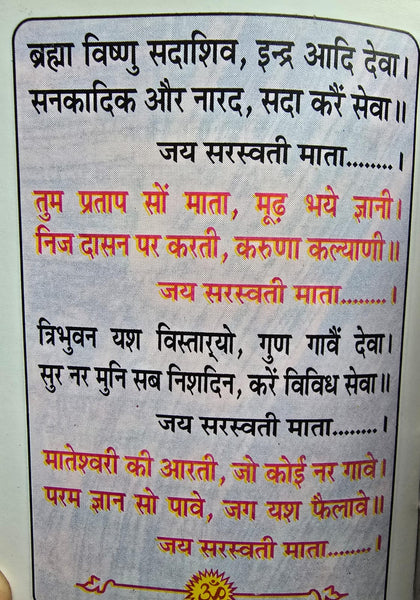 ब्रह्मा विष्णु सदाशिव, इन्द्र आदि देवा।
सनकादिक और नारद, सदा करैं सेवा॥
जय सरस्वती माता........।
तुम प्रताप सों माता, मूढ़ भये ज्ञानी।
निज दासन पर करती, करुणा कल्याणी॥
जय सरस्वती माता........।
त्रिभुवन यश विस्तार्‌यो, गुण गावैं देवा।
सुर नर मुनि सब निशदिन, करें विविध सेवा॥
जय सरस्वती माता........।
मातेश्वरी की आरती, जो कोई नर गावे।
परम ज्ञान सो पावे, जग यश फैलावे॥
जय सरस्वती माता........।
ॐ